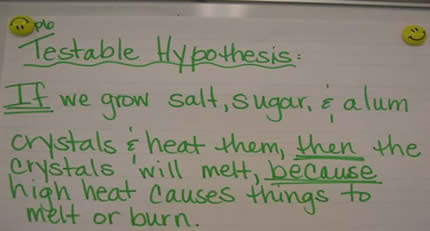 Testable Hypothesis:
If we grow salt, sugar, & alum
crystals & heat them, then the
crystals will melt, because
high heat causes things to
melt or burn.